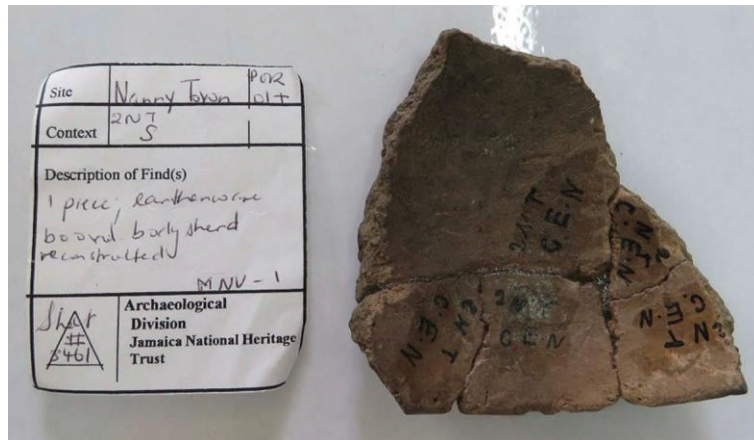 Site Nanny Town POR
01+
Context 2NT
S
Description of Find(s)
1 piece, earthenware
body sherd
reconstructed
MNV-1
Archaeological
Division
Jamaica National Heritage
Trust
#
5461
2NT
C.E.N
2NT
C.E.N
2NT
C.E.N
C.E.N